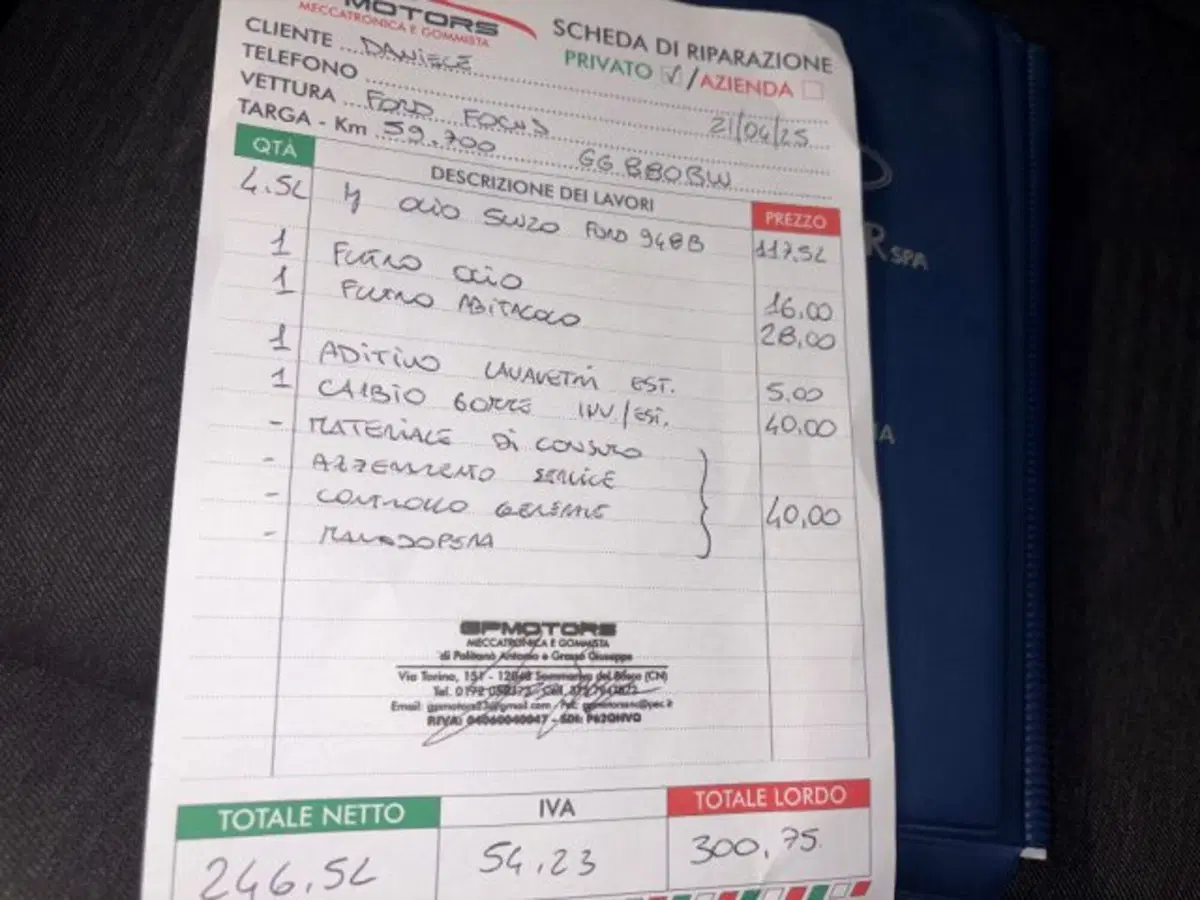 MOTORS
MECCATRONICA E GOMMISTA
SCHEDA DI RIPARAZIONE
PRIVATO ✓ / AZIENDA
CLIENTE DANIELE
TELEFONO
21/04/25
VETTURA FORD FOCUS
TARGA - Km 59.700 GG880BW
QTÀ DESCRIZIONE DEI LAVORI PREZZO
4.5L OLIO FORD 948B 117,52
1 FILTRO OLIO 16,00
1 FILTRO ABITACOLO 28,00
1 ADITIVO LAVAVETRI EST. 5.00
1 CAMBIO GOMME INV/EST. 40,00
- MATERIALE DI CONSUMO
- AZZERAMENTO SERVICE
- CONTROLLO GENERALE 40,00
- MANODOPERA
GPMOTORS
MECCATRONICA E GOMMISTA
di Politanò Antonio e Grasso Giuseppe
Via Torino, 151 - 12048 Sommariva del Bosco (CN)
Tel. 0172 Cell.
Email: gpmotors23@gmail.com
P.IVA: 04060040047 - SDI: P62QHVQ
TOTALE NETTO IVA TOTALE LORDO
246,52 54,23 300,75
R SPA